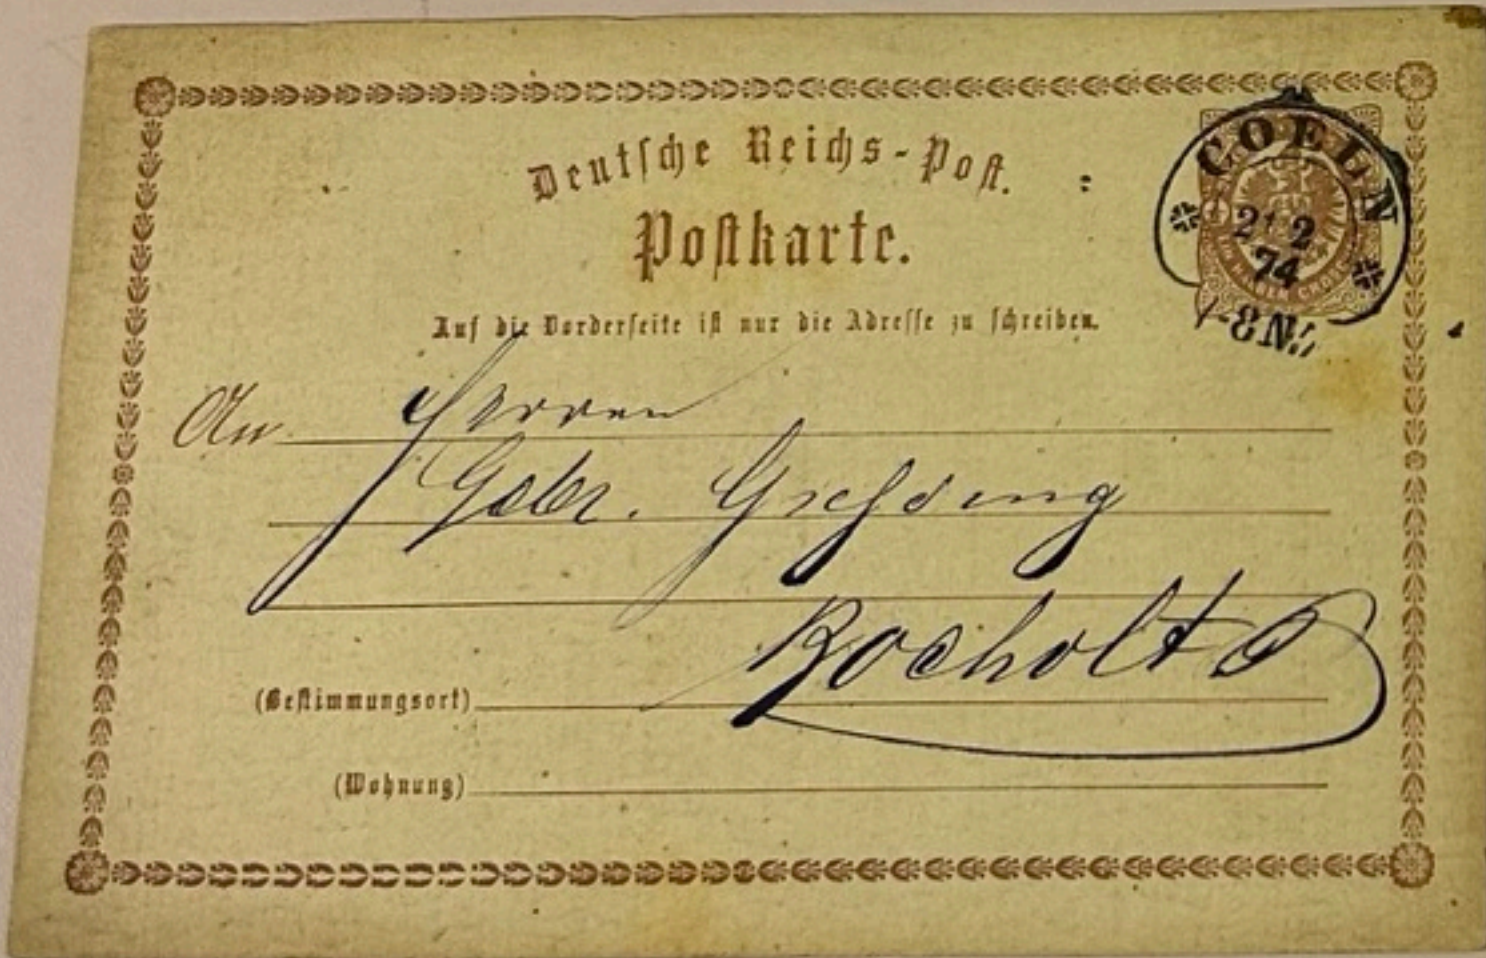 Deutsche Reichs-Post.
Postkarte.
COELN
2 2
74
-8 N.
Auf die Vorderseite ist nur die Adresse zu schreiben.
An Herren
Gebr.
Bocholt
(Bestimmungsort)
(Wohnung)